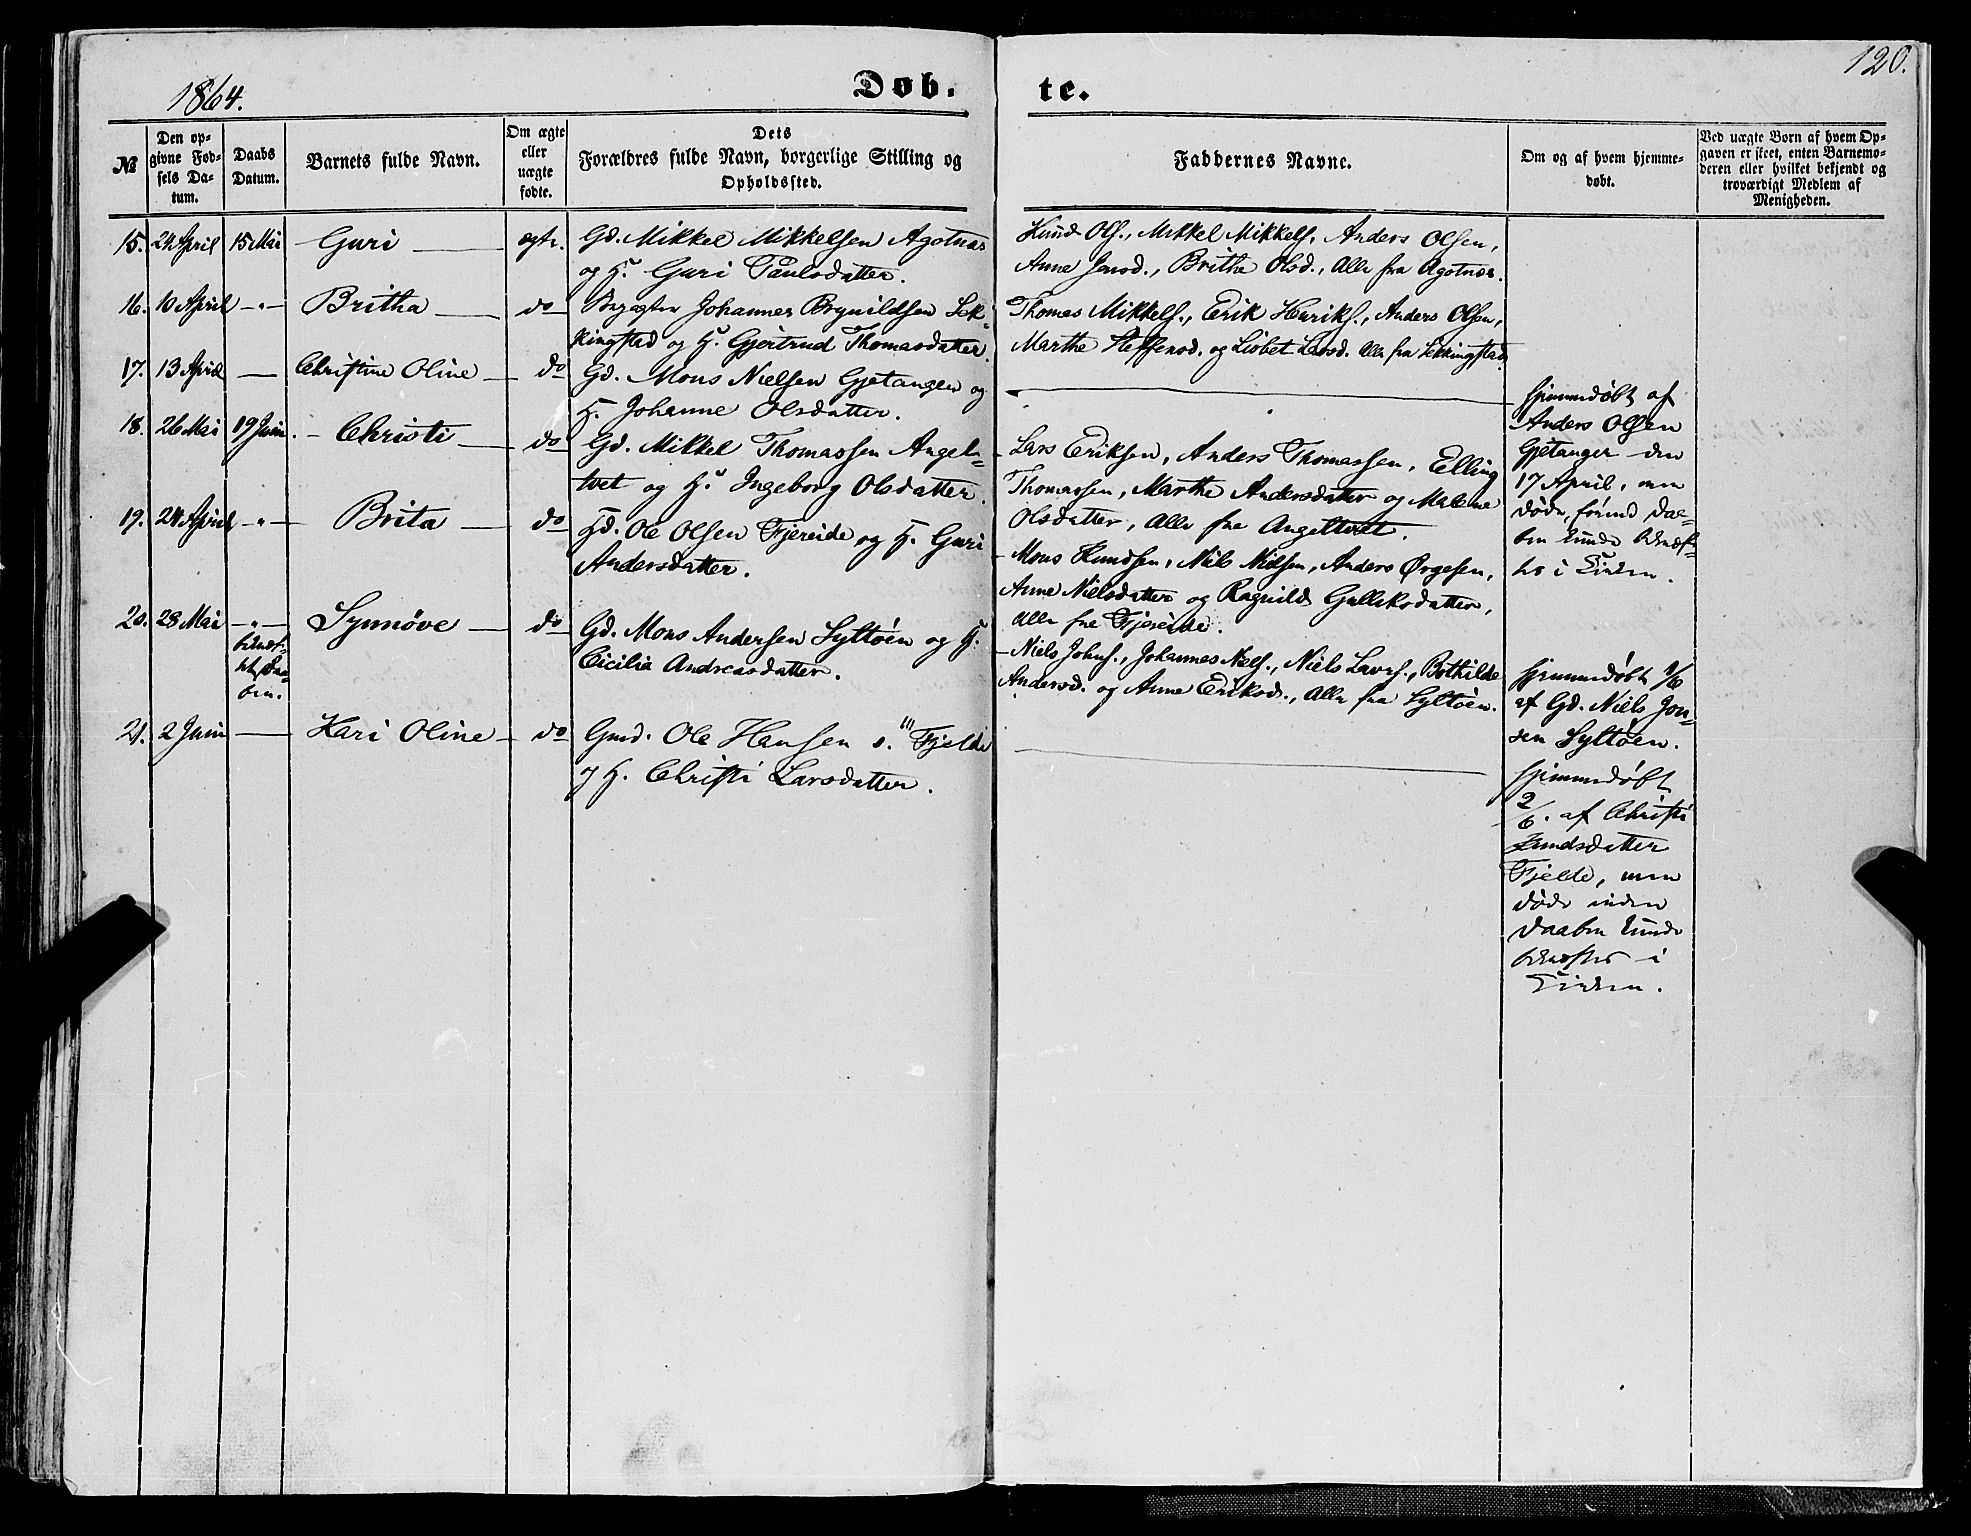 1864.
Døb-
te.
120.
№
Den op-
givne Fød-
sels Da-
tum.
Daabs
Datum.
Barnets fulde Navn.
Om ægte
eller
uægte
fødte.
Dets
Forældres fulde Navn, borgerlige Stilling og
Opholdssted.
Faddernes Navne.
Om og af hvem hjemme-
døbt.
Ved uægte Børn af hvem Op-
gaven er skeet, enten Barnemo-
deren eller hvilket bekjendt og
troværdigt Medlem af
Menigheden.
15. 24 April 15 Mai Guri ægte. Gd. Mikkel Mikkelsen Agotnæs
og H. Guri Paulsdatter.
Knud Ols., Mikkel Mikkels. Anders Olsen,
Anne Jensd., Britha Olsd., Alle fra Agotnæs.
16. 10 April -"- Britha do Johannes Brynildsen Sek-
kingstad og H. Gjertrud Thomasdatter.
Thomas Mikkels., Erik Henriks., Anders Olsen,
Marthe Steffensd. og Lisbet Larsd. Alle fra Sekkingstad.
17. 13 April Christine Oline do Gd. Mons Nielsen Gjetangen og
H. Johanne Olsdatter.
Hjemmedøbt af
Anders Olsen
Gjetanger den
17 April, men
døde, førend Daa-
ben kunde bekræf-
tes i Kirken.
18. 26 Mai 19 Juni. Christi do Gd. Mikkel Thomassen Angelt-
vet og H. Ingeborg Olsdatter.
Lars Eriksen, Anders Thomassen, Elling
Thomassen, Marthe Andersdatter og Malene
Olsdatter, Alle fra Angeltvet.
19. 24 April -"- Brita do Gd. Ole Olsen Fjereide og H. Guri
Andersdatter.
Mons Knudsen, Niels Nielsen, Anders Ørgesen,
Anne Nielsdatter og Ragnild Gulleksdatter,
Alle fra Fjereide.
20. 28 Mai -"- Synnøve do Gd. Mons Andersen Syltøen og H.
bekræf-
tet Daa-
ben.
Cicilia Andreasdatter.
Niels Johns., Johannes Niels., Niels Lars., Bothilde
Andersd. og Anne Eriksd., Alle fra Syltøen.
Hjemmedøbt
af Gd. Niels Jon-
sen Syltøen.
21. 2 Juni Kari Oline do Gmd. Ole Hansen Fjelde
og H. Christi Larsdatter.
Hjemmedøbt
2/6. af Christi
Knudsdatter
Fjelde, men
døde inden
Daaben kunde
bekræftes i
Kirken.